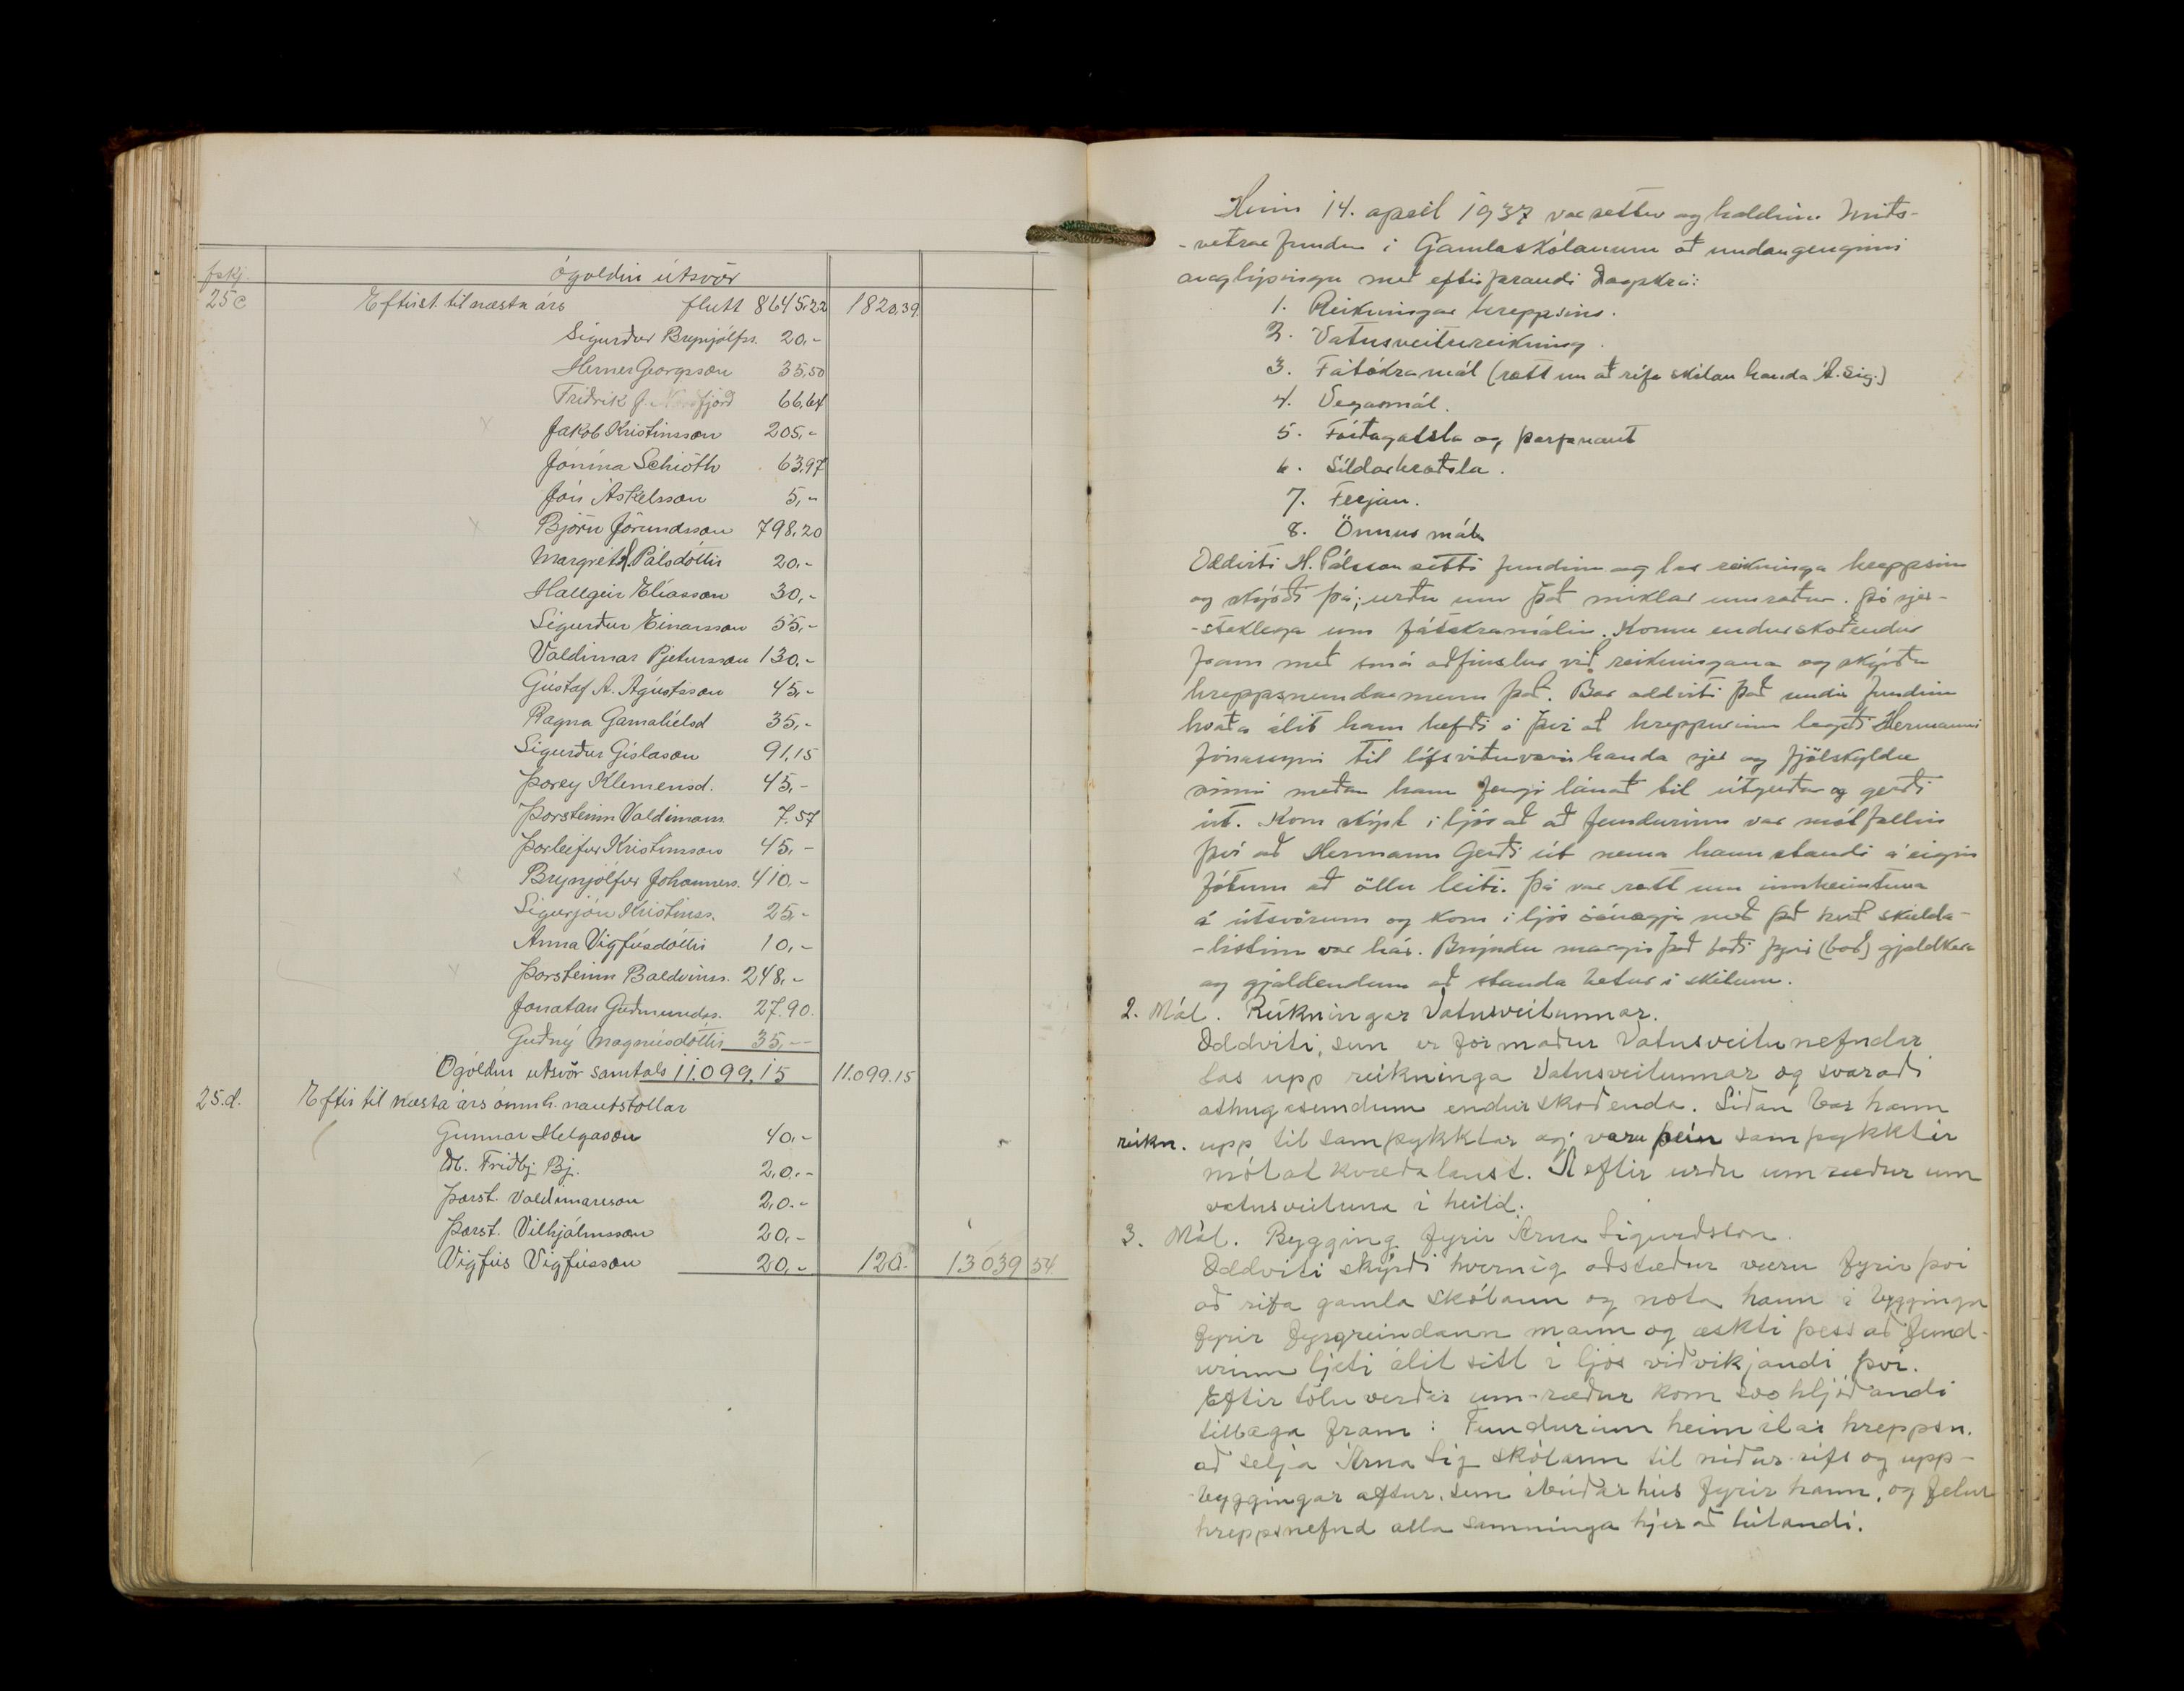 fskj. Ógoldin útsvör
25 c Eftirst. til næsta árs flutt 8645,22 1820,39
Sigurður Brynjólfss. 20,-
Hermes Georgsson 35,50
Friðrik J. Norðfjörð 66,64
x Jakob Kristinsson 205,-
Jónína Schiöth 63,97
Jón Áskelsson 5,-
x Björn Jörundsson 798,20
Margrét Pálsdóttir 20,-
Hallgeir Elíasson 30,-
Sigurður Einarsson 55,-
Valdimar Pjetursson 130,-
Gústaf A. Ágústsson 45,-
Ragna Gamalíelsd 35,-
Sigurður Gíslason 91,15
Þorey Klemensd. 45,-
Þorsteinn Valdimars 7.57
Þorleifur Kristinsson 45,-
x Brynjólfur Jóhanness. 410,-
Sigurjón Kristinss. 25,-
Anna Vigfúsdóttir 10,-
x Þorsteinn Baldvinss. 248,-
Jónatan Guðmundss. 27.90.
Guðný Magnúsdóttir 35,--
Ógoldin útsvör samtals 11.099,15 11.099.15
25.d. Eftir til næsta árs óinnh. nautstollar
Gunnar Helgason 40,-
Db. Friðbj Bj. 20.-
Þorst. Valdimarsson 20.-
Þorst. Vilhjálmsson 20,-
Vigfús Vigfússon 20,- 120.- 13039 54
Hinn 14. apríl 1937 var settur og haldinn Miðs-
-vetrar fundur í Gamlaskólanum að undangenginni
auglýsingu með eftirfarandi Dagskrá:
1. Reikningar hreppsins.
2. Vatnsveitureikning.
3. Fátækramál (rætt um að rífa skólan handa Á. Sig.)
4. Vegamál.
5. Forðagætsla og þarfanaut
6. Síldarbræðsla.
7. Ferjan.
8. Önnur mál
Oddviti H. Pálsson setti fundinn og las reikninga hreppsins
og skýrði þá; urðu um það miklar umræður. Þó sjer-
-staklega um fátækramálin. Komu endurskoðendur
fram með smá aðfinslur við reikningana og skýrðu
hreppsnendarmenn það. Bar oddviti það undir fundinn
hvaða álit hann hefði á því að hreppurinn legði Hermanni
Jónassyni til lífsviðurværi handa sjer og fjölskyldu
sinni meðan hann fengi lánað til útgerðar og gerði
út. Kom skýrt í ljós að að fundurinn var mótfallin
því að Hermann Gerði út nema hann standi á eigin
fótum að öllu leiti. Þá var rætt um innheimtuna
á útsvörum og kom í ljós óánægja með það hvað skulda-
-listinn var hár. Brýndu margir það bæði fyrir (bað) gjaldkera
og gjaldendum að standa betur í skilum.
2. Mál. Reikningar Vatnsveitunnar.
Oddviti, sem er formaður Vatnsveitunefndar
las upp reikninga Vatnsveitunnar og svaraði
athugasemdum endurskoðenda. Síðan bar hann
reikn. upp til samþykktar og voru þeir samþykktir
mótatkvæðalaust. Á eftir urðu umræður um
vatnsveituna í heild.
3. Mál. Bygging fyrir Árna Sigurdsson.
Oddviti skýrði hvernig aðstæður væru fyrir því
að rífa gamla skólann og nota hann í byggingu
fyrir fyrgreindann mann og æskti þess að fund-
urinn ljeti álit sitt í ljós viðvikjandi því.
Eftir töluverðar um-ræður kom svo hljóðandi
tillaga fram: Fundurinn heimilar hreppsn.
að selja Árna Sig skólann til niður rifs og upp-
byggingar aftur, sem íbúðar hús fyrir hann, og felur
hreppsnefnd alla samninga hjer að lútandi.